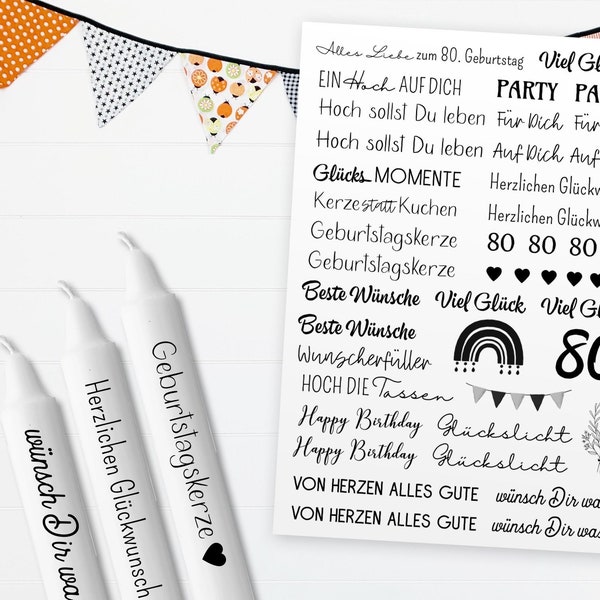 Alles Liebe zum 80. Geburtstag
Viel
EIN Hoch AUF DICH
PARTY
Hoch sollst Du leben
Für Dich Für
Hoch sollst Du leben
Auf Dich Auf
Glücks MOMENTE
Herzlichen
Kerze statt Kuchen
Herzlichen
Geburtstagskerze
80 80 80
Geburtstagskerze
Beste Wünsche
Viel Glück
Viel
Beste Wünsche
80
Wunscherfüller
HOCH DIE Tassen
Happy Birthday
Glückslicht
Happy Birthday
Glückslicht
VON HERZEN ALLES GUTE
wünsch Dir
VON HERZEN ALLES GUTE
wünsch Dir
wünsch Dir
Herzlichen Glückwunsch
Geburtstagskerze